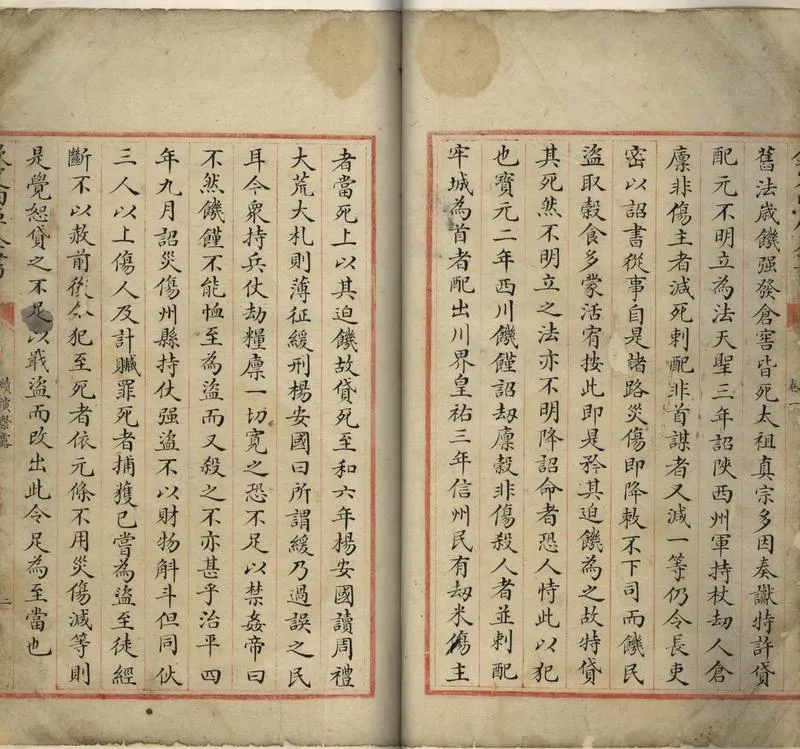 舊法歲饑强發倉窖皆死太祖真宗多因奏讞特許貸
配元不明立為法天聖三年詔陝西州軍持杖刼人倉
廪非傷主者減死刺配非首謀者又減一等仍令長吏
密以詔書從事自是諸路災傷即降敕不下司而饑民
盜取穀食多蒙活宥按此即是矜其迫饑為之故特貸
其死然不明立之法亦不明降詔命者恐人恃此以犯
也寶元二年西川饑饉詔刼廪穀非傷殺人者並刺配
牢城為首者配出川界皇祐三年信州民有刼米傷主
者當死上以其迫饑故貸死至和六年楊安國讀周禮
大荒大札則薄征緩刑楊安國曰所謂緩乃過誤之民
耳今衆持兵仗劫糧廪一切寛之恐不足以禁姦帝曰
不然饑饉不能恤至為盜而又殺之不亦甚乎治平四
年九月詔災傷州縣持仗强盜不以財物斛斗但同伙
三人以上傷人及計贓罪死者捕獲已嘗為盜至徒經
斷不以赦前後今犯至死者依元條不用災傷減等則
是覺恕貸之不足以戢盜而改出此令足為至當也
續演繁露
二